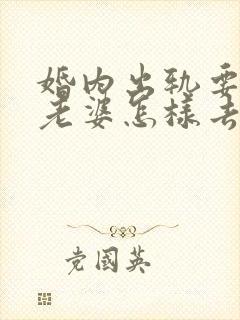 婚内出轨要
老婆怎样去
党国英